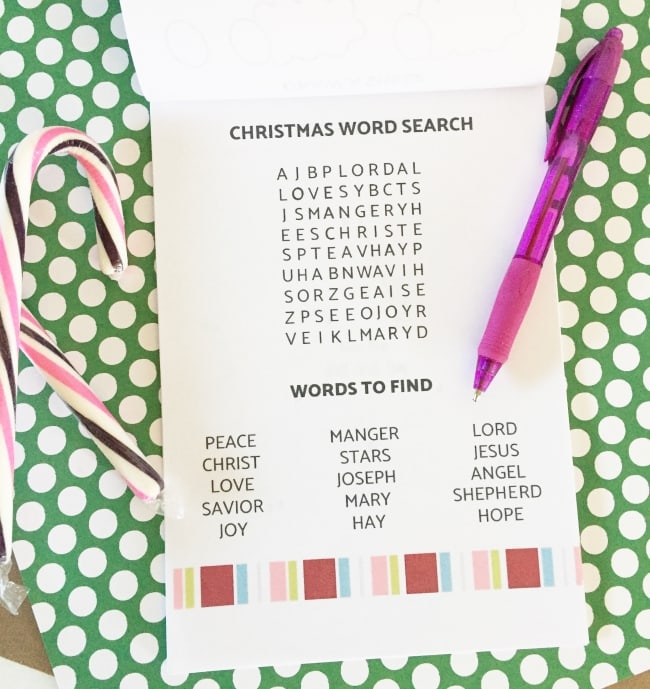 CHRISTMAS WORD SEARCH
A J B P L O R D A L
L O V E S Y B C T S
J S M A N G E R Y H
E E S C H R I S T E
S P T E A V H A Y P
U H A B N W A V I H
S O R Z G E A I S E
Z P S E E O J O Y R
V E I K L M A R Y D
WORDS TO FIND
PEACE MANGER LORD
CHRIST STARS JESUS
LOVE JOSEPH ANGEL
SAVIOR MARY SHEPHERD
JOY HAY HOPE